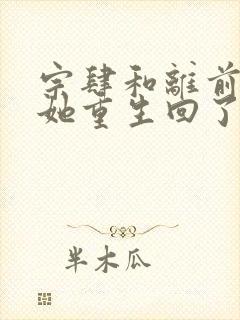 宗肆和離前
她重生回了
半木瓜